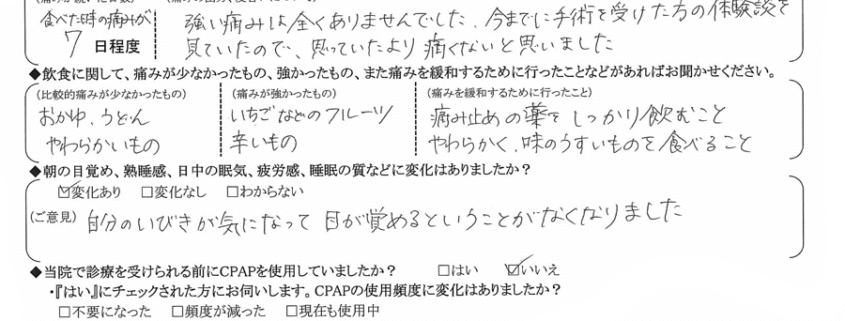 食べた時の痛みが 強い痛みは全くありませんでした。今までに手術を受けた方の体験談を
7 日程度 見ていたので、思っていたより痛くないと思いました
◆飲食に関して、痛みが少なかったもの、強かったもの、また痛みを緩和するために行ったことなどがあればお聞かせください。
(比較的痛みが少なかったもの) (痛みが強かったもの) (痛みを緩和するために行ったこと)
おかゆ、うどん いちごなどのフルーツ 痛み止めの薬をしっかり飲むこと
やわらかいもの 辛いもの やわらかく、味のうすいものを食べること
◆朝の目覚め、熟睡感、日中の眠気、疲労感、睡眠の質などに変化はありましたか?
☑変化あり □変化なし □わからない
(ご意見) 自分のいびきが気になって目が覚めるということがなくなりました
◆当院で診療を受けられる前にCPAPを使用していましたか? □はい ☑いいえ
・『はい』にチェックされた方にお伺いします。CPAPの使用頻度に変化はありましたか?
□不要になった □頻度が減った □現在も使用中